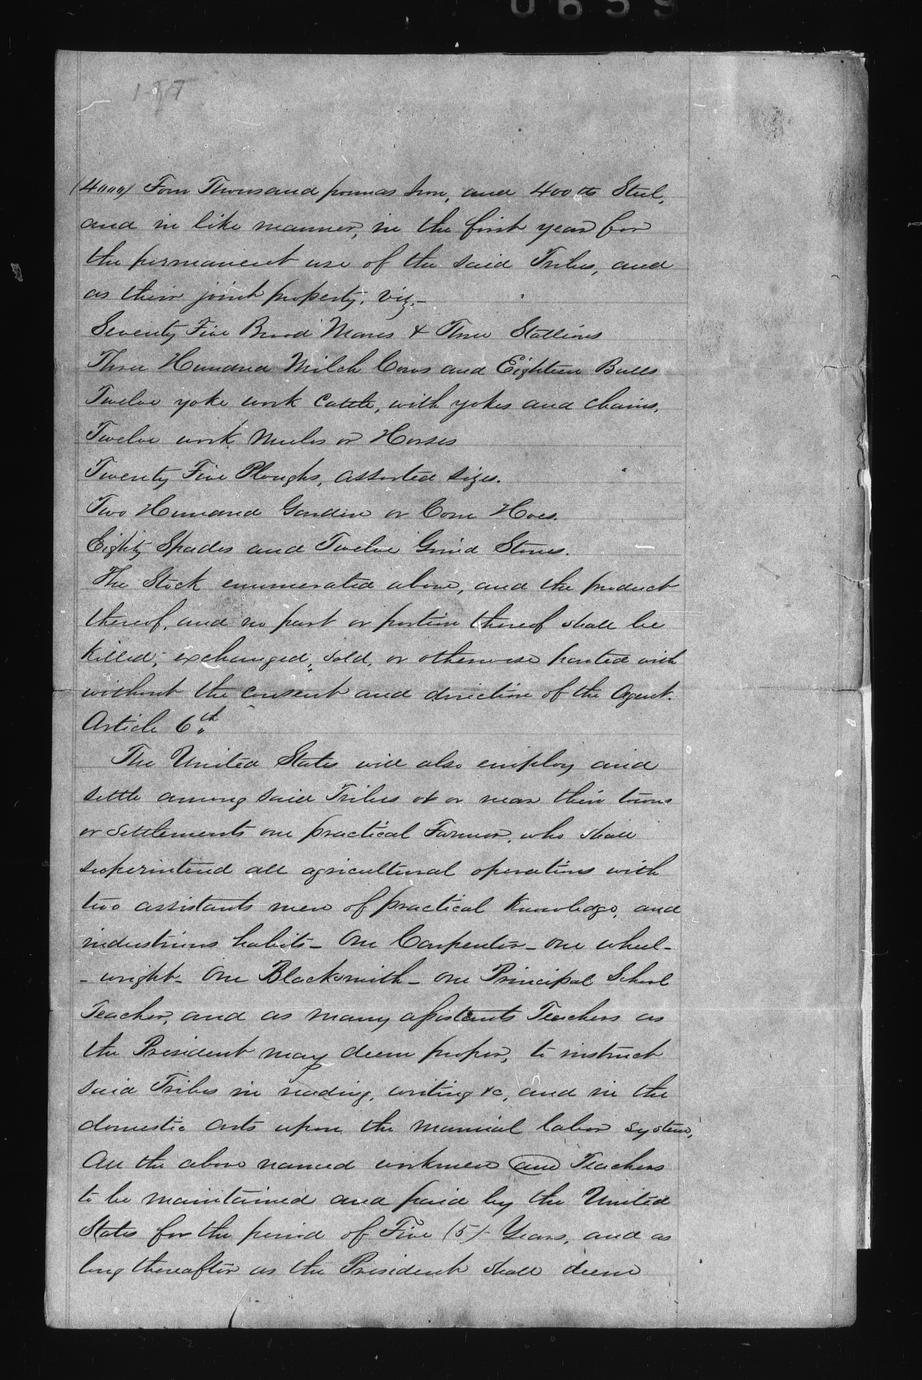 0659
(4000) Four Thousand pounds Iron, and 400 lbs Steel,
and in like manner, in the first year for
the permanent use of the said Tribes, and
as their joint property, viz,-
Seventy Five Brood Mares & Three Stallions
Three Hundred Milch Cows and Eighteen Bulls
Twelve yoke work Cattle, with yokes and chains,
Twelve work Mules or Horses
Twenty Five Ploughs, assorted sizes.
Two Hundred Garden or Corn Hoes.
Eighty Spades and Twelve Grind Stones.
The Stock enumerated above, and the product
thereof, and no part or portion thereof shall be
killed, exchanged, sold, or otherwise parted with
without the consent and direction of the Agent.
Article 6th
The United States will also employ and
settle among said Tribes at or near their towns
or settlements one practical Farmer, who shall
superintend all agricultural operations with
two assistants men of practical knowledge, and
industrious habits - One Carpenter - one wheel-
-wright - One Blacksmith - one Principal School
Teacher, and as many assistants Teachers as
the President may deem proper, to instruct
said Tribes in reading, writing &c, and in the
domestic arts upon the manual labor system,
All the above named workmen and Teachers
to be maintained and paid by the United
States for the period of Five (5) Years, and as
long thereafter as the President shall deem